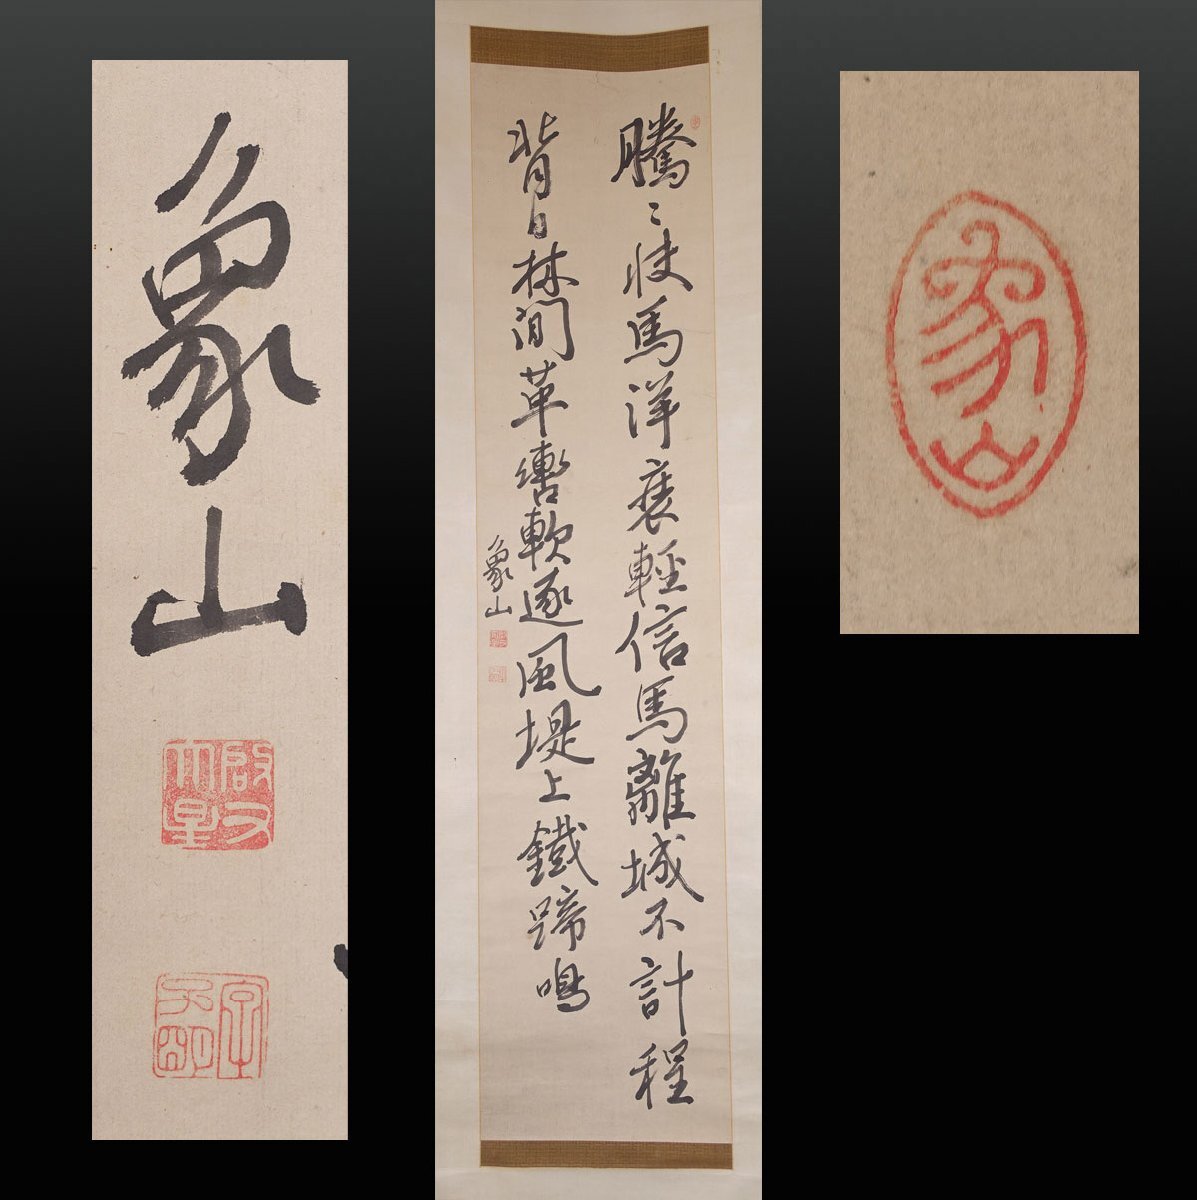 騰〻快馬洋裘輕信馬離城不計程
背日林間革轡軟逐風堤上鐵蹄鳴
象山
象山
象山